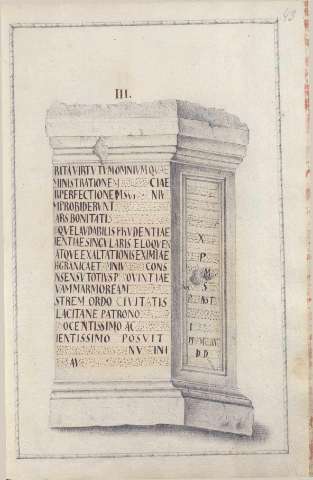 93
III.
RITA VIRTVTVM OMNIVM QVAE
MINISTRATIONEM CIAE
IVPERFECTIONEM
MPROBIDERVNT
ARS BONITATI
QVE LAVDABILIS PRVDENTIAE
IENTIAE SINGVLARIS ELOQVEN
ATQVE EXALTATIONIS EXIMIAE
CONS
NSENSV TOTIVS P OVINTIAE
VAM MARMOREAM
STREM ORDO CIVITATIS
LACITANE PATRONO
OCENTISSIMO AC
IENTISSIMO POSVIT
NV INI
AV
X
P
M
S
P AST
I
D D